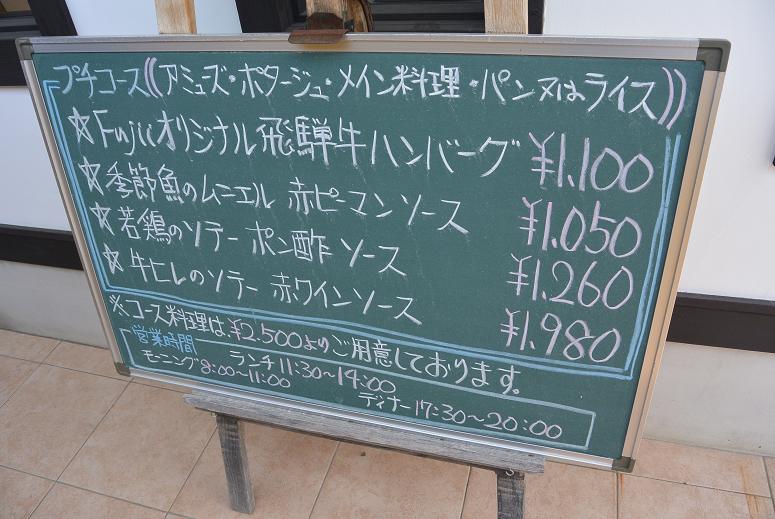 プチコース((アミューズ・ポタージュ・メイン料理・パン又はライス))
☆Fujiiオリジナル飛騨牛ハンバーグ ¥1.100
☆季節魚のムニエル 赤ピーマンソース ¥1.050
☆若鶏のソテー ポン酢ソース ¥1.260
☆牛ヒレのソテー 赤ワインソース ¥1.980
※コース料理は、¥2.500よりご用意しております。
営業時間
モーニング8:00〜11:00
ランチ11:30〜14:00
ディナー17:30〜20:00